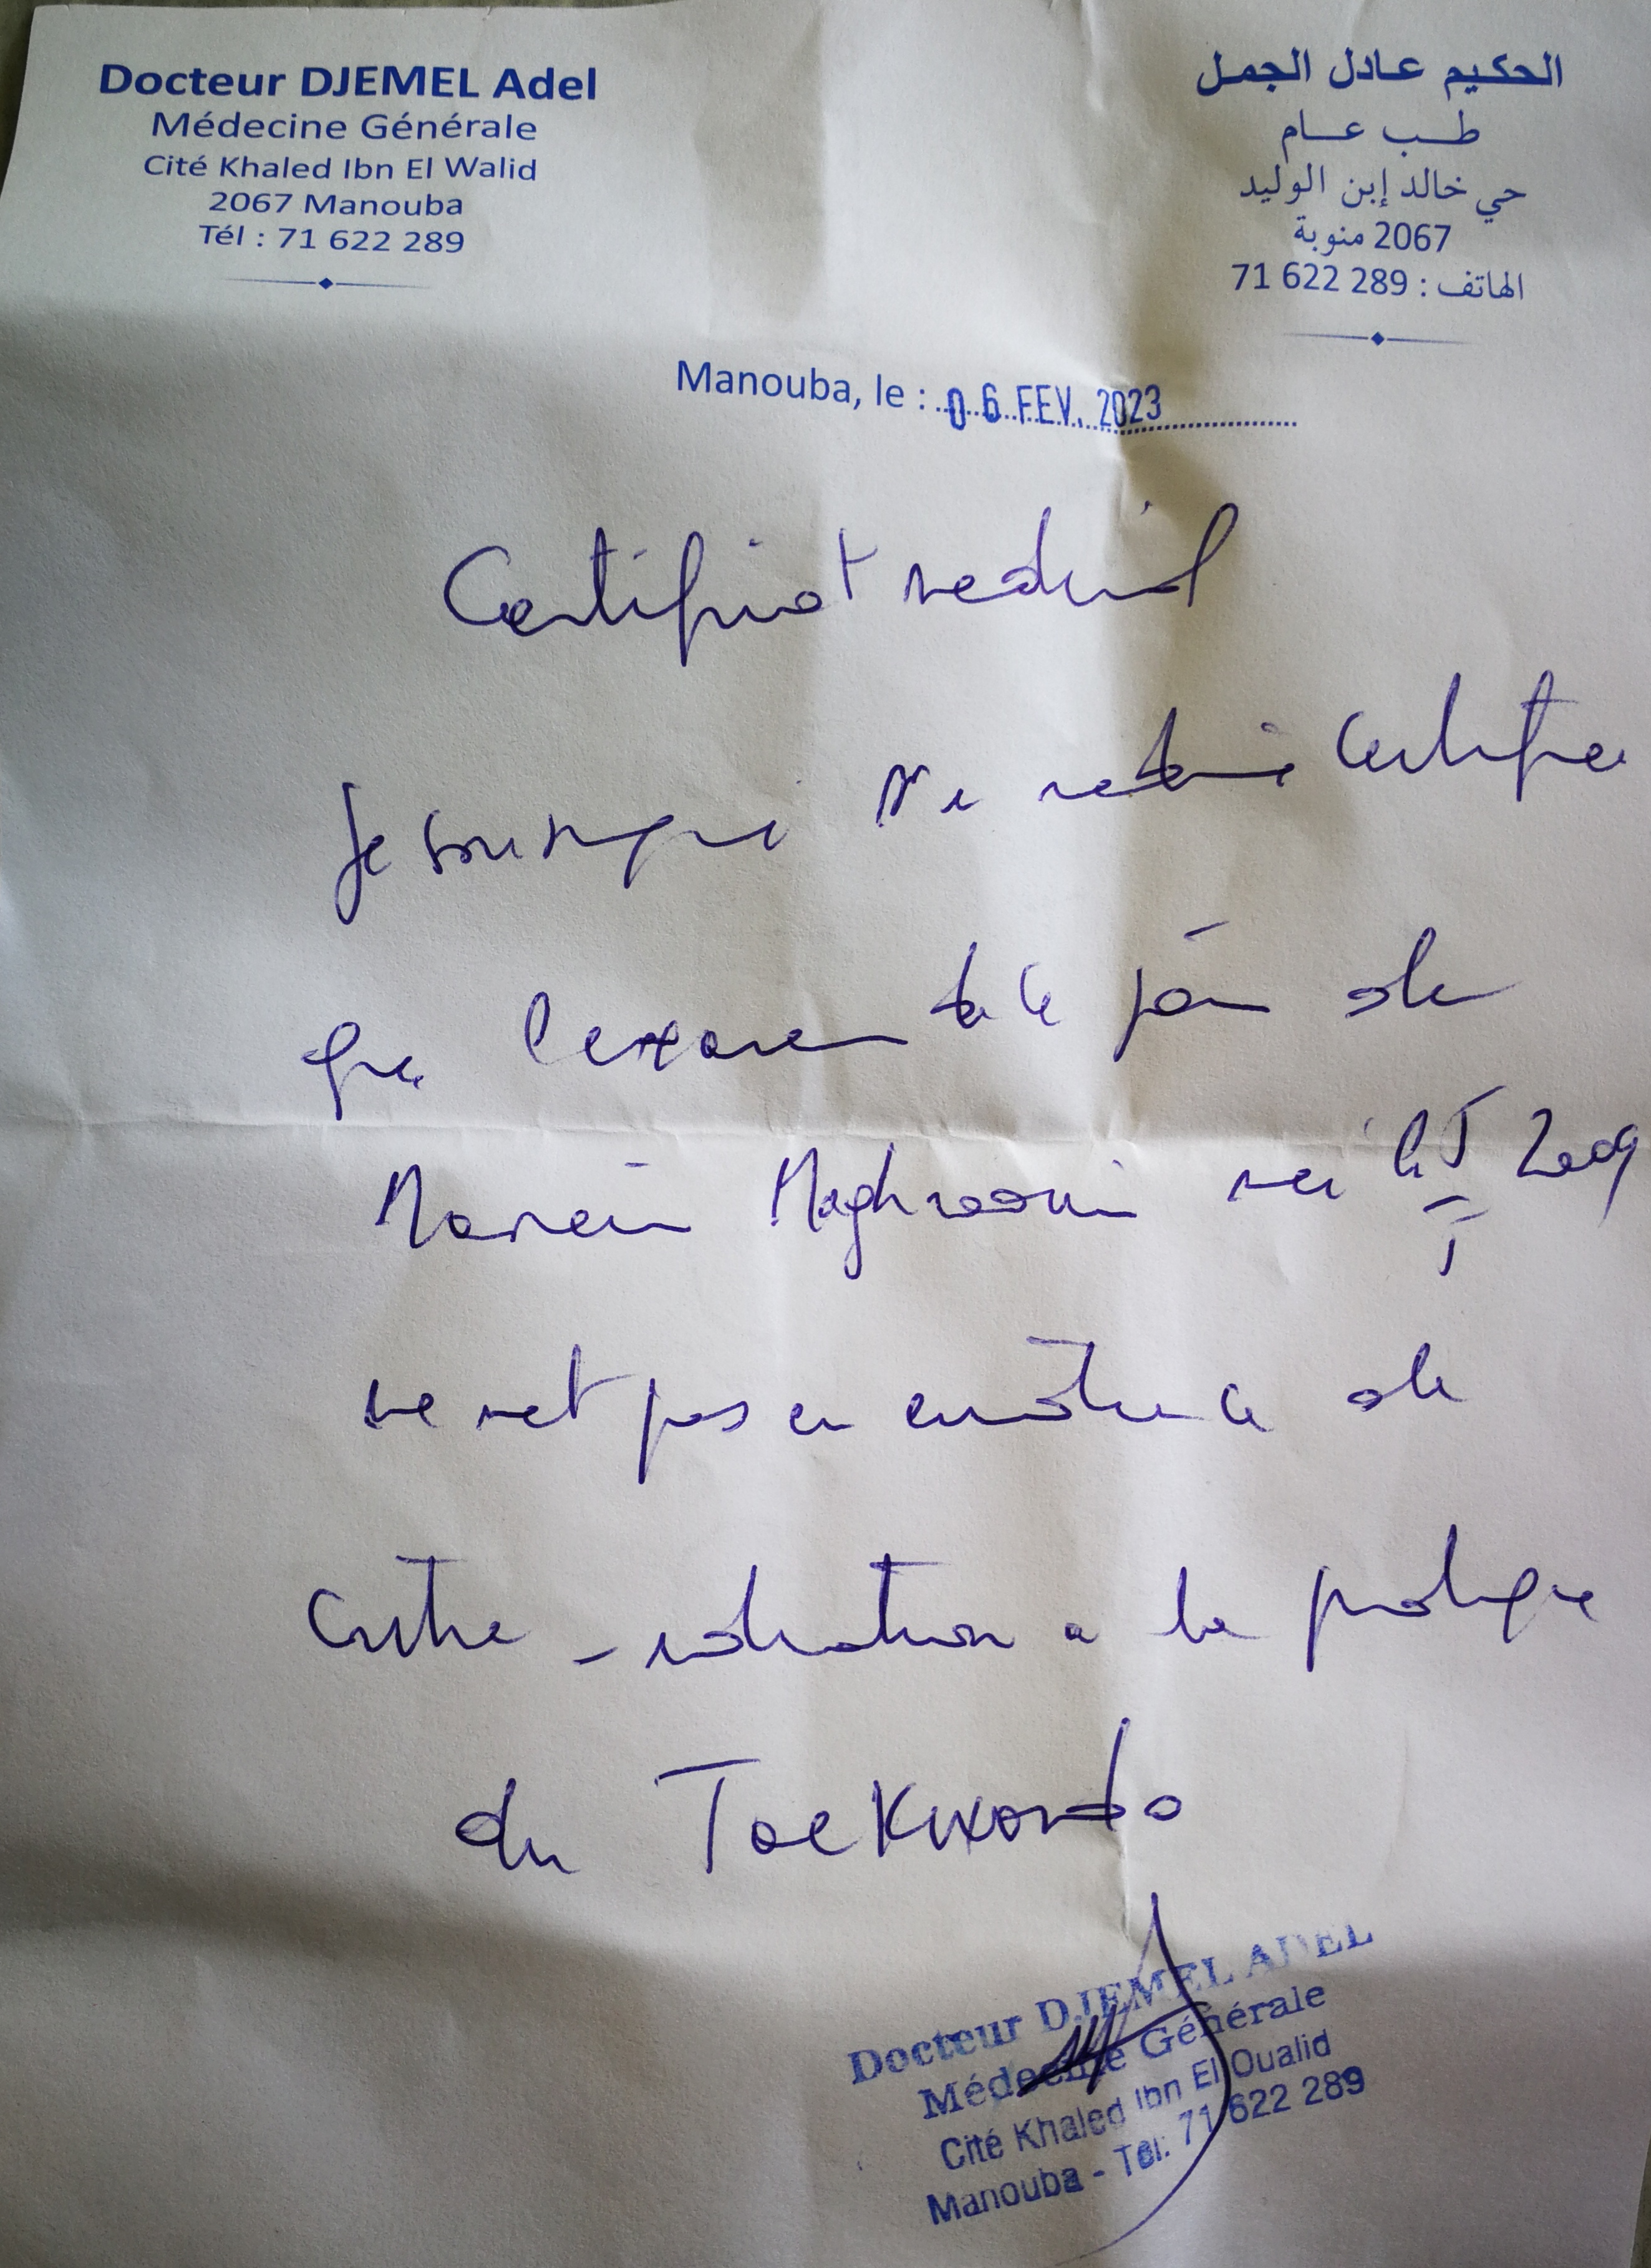 Docteur DJEMEL Adel
Médecine Générale
Cité Khaled Ibn El Walid
2067 Manouba
Tél : 71 622 289
الحكيم عادل الجمل
طب عام
حي خالد إبن الوليد
2067 منوبة
الهاتف : 289 622 71
Manouba, le : 06 FEV. 2023
Certificat medical
Je soussigné certifie
que l'examen de ce jour de
Maghraoui né le 2009
ne met pas en evidence de
contre-indication a la pratique
du Taekwondo
Docteur DJEMEL ADEL
Médecine Générale
Cité Khaled Ibn El Oualid
Manouba - Tél: 71 622 289